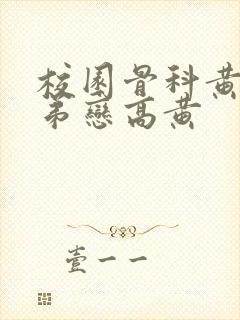 校園骨科黃
弟戀高黃
壹一一